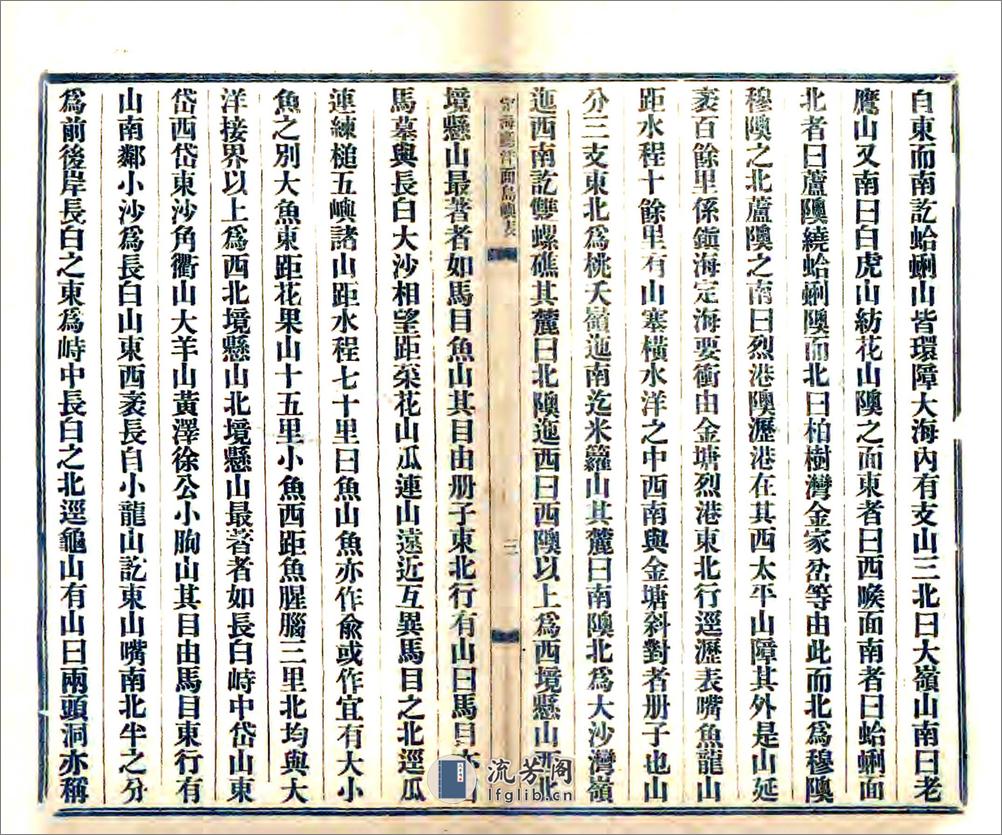 自東而南訖蛤蜊山皆環障大海內有支山三北曰大嶺山南曰老
鷹山又南曰白虎山紡花山隩之面東者曰西㬋面南者曰蛤蜊面
北者曰蘆隩繞蛤蜊隩而北曰柏樹灣金家岙等由此而北為穆隩
穆隩之北蘆隩之南曰烈港隩瀝港在其西太平山障其外是山延
袤百餘里係鎮海定海要衝由金塘烈港東北行逕瀝表嘴魚龍山
距水程十餘里有山塞橫水洋之中西南與金塘斜對者册子也山
分三支東北為桃夭嶺迤南迄米籮山其麓曰南隩北為大沙灣嶺
迤西南訖雙螺礁其麓曰北隩迤西曰西隩以上為西境懸山西北
海廳洋面島嶼表
三
境懸山最著者如馬目魚山其目由册子東北行有山曰馬目
馬墓與長白大沙相望距菜花山瓜連山遠近互異馬目之北逕瓜
連練槌五嶼諸山距水程七十里曰魚山魚亦作兪或作宜有大小
魚之別大魚東距花果山十五里小魚西距魚腥腦三里北均與大
洋接界以上為西北境懸山北境懸山最著者如長白峙中岱山東
岱西岱東沙角衢山大羊山黃澤徐公小朐山其目由馬目東行有
山南鄰小沙為長白山東西袤長自小龍山訖東山嘴南北半之分
為前後岸長白之東為峙中長白之北逕龜山有山曰兩頭洞亦稱
流芳阁
lfglib.cn